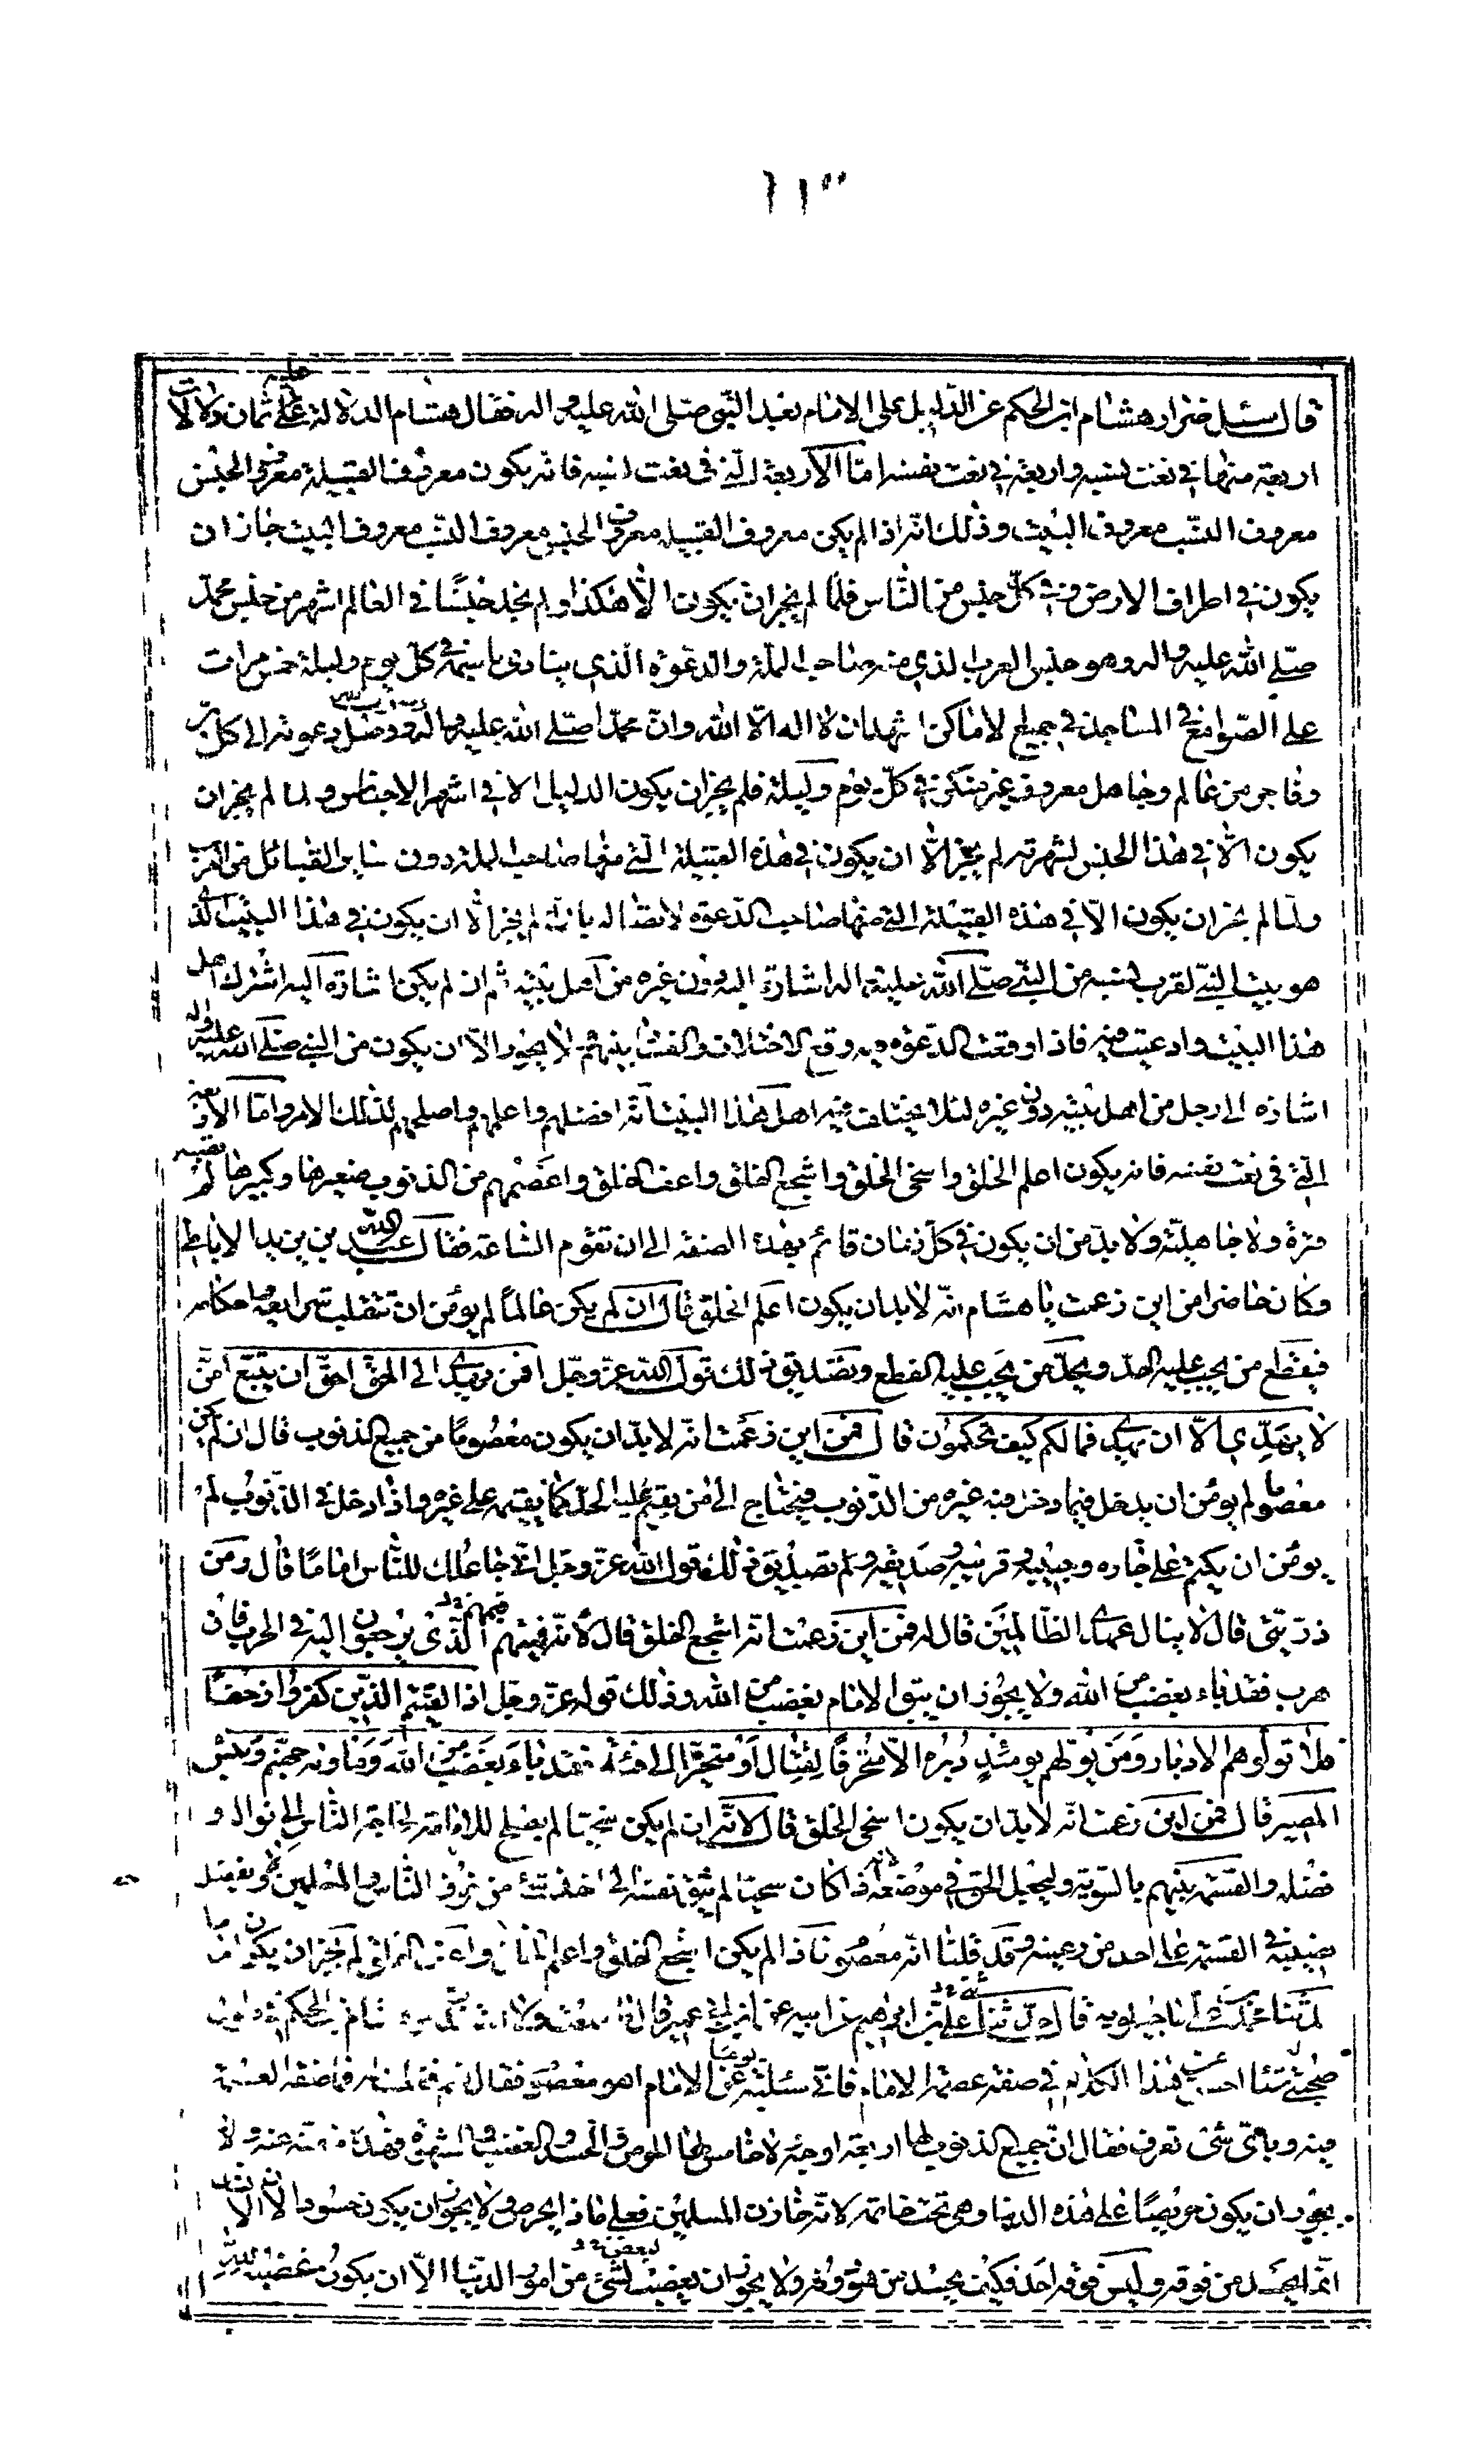 قال سئل ضرار هشام ابن الحكم عن الدليل على الامام بعد النبي صلى الله عليه واله فقال هشام الدلالة عليه ثمان دلالات
اربعة منها في نعت نسبه واربعة في نعت نفسه امّا الاربعة التي في نعت نسبه فانه يكون معروف القبيلة معروف الجنس
معروف النسب معروف البيت وذلك انه اذا لم يكن معروف القبيلة معروف الجنس معروف النسب معروف البيت جاز ان
يكون في اطراف الارض وفي كل جنس من الناس فلما لم يجز ان يكون الا هكذا ولم نجد جنسا في العالم اشهر من جنس محمد
صلى الله عليه واله وهو جنس العرب الذي منه صاحب الملة والدعوة الذي ينادى باسمه في كل يوم وليلة خمس مرات
على الصوامع في المساجد في جميع الاماكن اشهد ان لا اله الا الله وان محمدا صلى الله عليه واله ووصل دعوته الى كل بر
وفاجر من عالم وجاهل معروف غير منكر في كل يوم وليلة فلم يجز ان يكون الدليل الا في اشهر الاجناس ولما لم يجز ان
يكون الا في هذا الجنس لشهرته لم يجز الا ان يكون في هذه القبيلة التي منها صاحب الملة دون سائر القبائل من العرب
ولما لم يجز ان يكون الا في هذه القبيلة التي منها صاحب الدعوة لاتصاله بالملة لم يجز الا ان يكون في هذا البيت الذي
هو بيت النبي لقرب نسبه من النبي صلى الله عليه واله اشارة اليه دون غيره من اهل بيته ثم ان لم يكن اشارة اليه اشترك اهل
هذا البيت وادعيت فيه فاذا وقعت الدعوة فيه وقع الاختلاف والفساد بينهم ولا يجوز الا ان يكون من النبي صلى الله عليه واله
اشارة الى رجل من اهل بيته دون غيره لئلا يختلف فيه اهل هذا البيت انه افضلهم واعلمهم واصلحهم لذلك الامر وامّا الاربعة
التي في نعت نفسه فانه يكون اعلم الخلق واسخى الخلق واشجع الخلق واعف الخلق واعصمهم من الذنوب صغيرها وكبيرها لم تصبه
فترة ولا جاهلية ولا بد من ان يكون في كل زمان قائم بهذه الصفة الى ان تقوم الساعة فقال عبد الله بن يزيد الاباضي
وكان حاضرا من اين زعمت يا هشام انه لا بد ان يكون اعلم الخلق قال ان لم يكن عالما لم يؤمن ان تنقلب شرايعه واحكامه
فيقطع من يجب عليه الحد ويحد من يجب عليه القطع وتصديق ذلك قول الله عز وجل افمن يهدي الى الحق احق ان يتبع امّن
لا يهدّي الا ان يهدى فما لكم كيف تحكمون قال فمن اين زعمت انه لا بد ان يكون معصوما من جميع الذنوب قال ان لم يكن
معصوما لم يؤمن ان يدخل فيما دخل فيه غيره من الذنوب فيحتاج الى من يقيم عليه الحد كما يقيمه على غيره واذا دخل في الذنوب لم
يؤمن ان يكتم على جاره وحبيبه وقريبه وصديقه وتصديق ذلك قول الله عز وجل اني جاعلك للناس اماما قال ومن
ذريتي قال لا ينال عهدي الظالمين قال له فمن اين زعمت انه اشجع الخلق قال لانه قيمهم الذي يرجعون اليه في الحرب فان
هرب فقد باء بغضب من الله ولا يجوز ان يبوء الامام بغضب من الله وذلك قوله عز وجل اذا لقيتم الذين كفروا زحفا
فلا تولوهم الادبار ومن يولهم يومئذ دبره الا متحرفا لقتال او متحيزا الى فئة فقد باء بغضب من الله وماويه جهنم وبئس
المصير قال فمن اين زعمت انه لا بد ان يكون اسخى الخلق قال لانه ان لم يكن سخيا لم يصلح للامامة لحاجة الناس الى نواله و
فضله والقسمة بينهم بالسوية وليجعل الحق في موضعه لانه اذا كان سخيا لم تتق نفسه الى اخذ شئ من حقوق الناس والمسلمين ولا يفضل
نصيبه في القسمة على احد من رعيته وقد قلنا انه معصوم فاذا لم يكن اشجع الخلق واعلم الخلق واسخى الخلق واعف الخلق لم يجز ان يكون اماما
حدثنا محمد بن علي ماجيلويه قال حدثنا علي بن ابراهيم عن ابيه عن ابن ابي عمير قال ما سمعت ولا استفدت من هشام بن الحكم في طول
صحبتي شيئا احسن من هذا الكلام في صفة عصمة الامام فاني سئلته يوما عن الامام اهو معصوم فقال نعم فقلت فما صفة العصمة
فيه وباي شئ تعرف فقال ان جميع الذنوب لها اربعة اوجه لا خامس لها الحرص والحسد والغضب والشهوة فهذه منفية عنه ولا
يجوز ان يكون حريصا على هذه الدنيا وهي تحت خاتمه لانه خازن المسلمين فعلى ماذا يحرص ولا يجوز ان يكون حسودا لان الانسان
انما يحسد من فوقه وليس فوقه احد فكيف يحسد من هو دونه ولا يجوز ان يغضب لشئ من امور الدنيا الا ان يكون غضبه لله